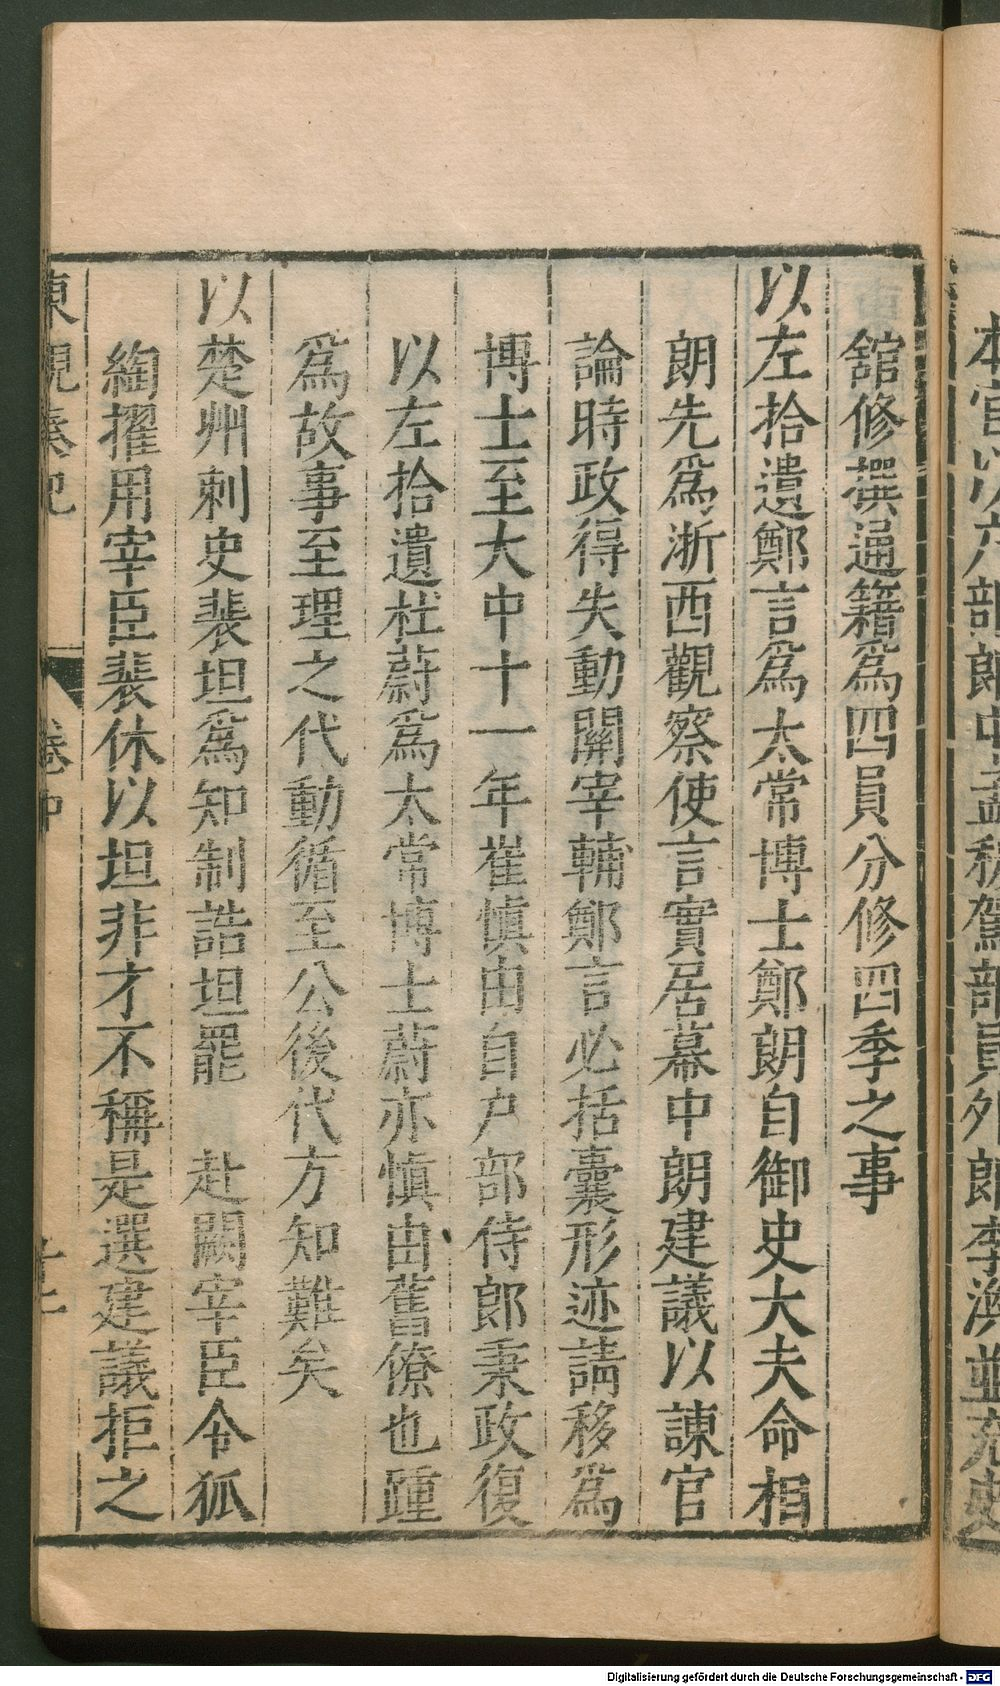 本官以六部郎中孟穆駕部員外郎李渙並充史
舘修撰通籍爲四員分修四季之事
以左拾遺鄭言爲太常博士鄭朗自御史大夫命相
朗先爲浙西觀察使言實居幕中朗建議以諫官
論時政得失動關宰輔鄭言必括囊形迹請移爲
博士至大中十一年崔慎由自户部侍郎秉政復
以左拾遺杜蔚爲太常博士蔚亦慎由舊僚也踵
爲故事至理之代動循至公後代方知難矣
以楚州刺史裴坦爲知制誥坦罷　赴闕宰臣令狐
綯擢用宰臣裴休以坦非才不稱是選建議拒之
東觀奏記　卷中
Digitalisierung gefördert durch die Deutsche Forschungsgemeinschaft - DFG